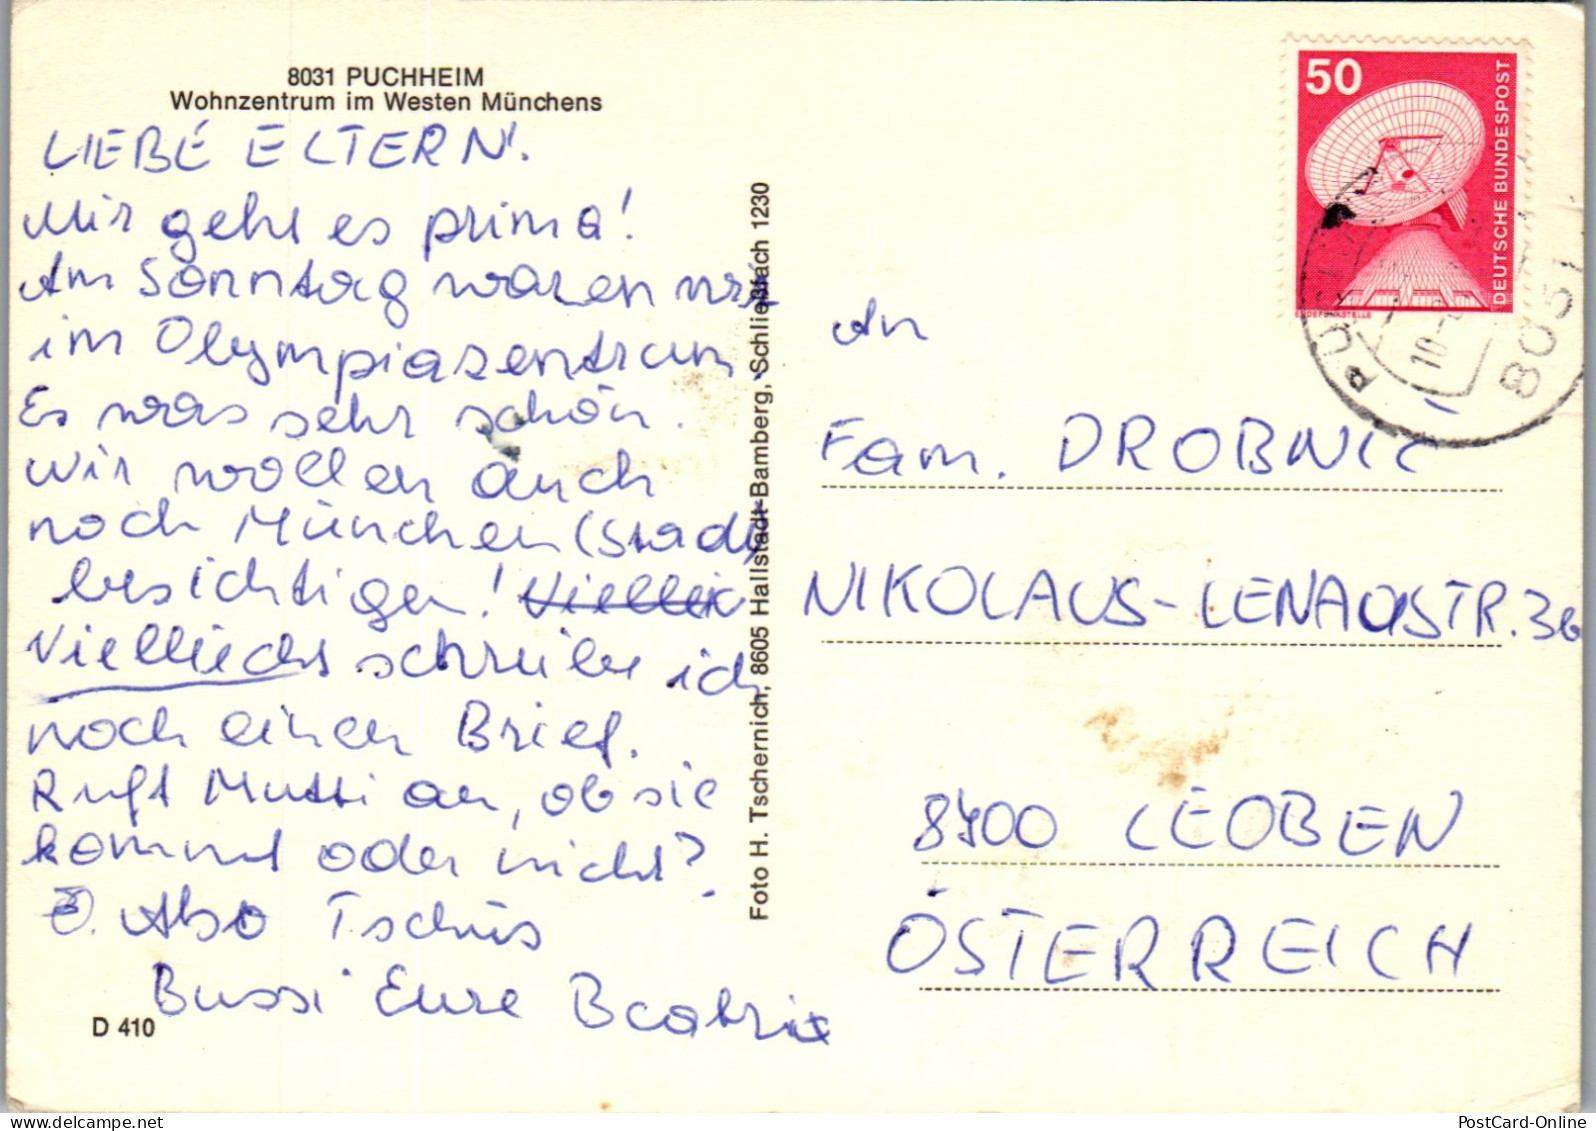 8031 PUCHHEIM
Wohnzentrum im Westen Münchens
LIEBE ELTERN!
Mir geht es prima!
Am Sonntag waren wir
im Olympiazentrum
Es war sehr schön.
Wir wollen auch
noch München (Stadt)
besichtigen! Vielleic
Vielleicht schreibe ich
noch einen Brief.
Ruft Mutti an, ob sie
kommt oder nicht?
Also Tschüs
Bussi Eure Beatrix
D 410
Foto H. Tschernich, 8605 Hallstadt-Bamberg, Schließfach 1230
50
DEUTSCHE BUNDESPOST
ERDEFUNKSTELLE
An
Fam. DROBNIC
NIKOLAUS-LENAUSTR. 36
8700 LEOBEN
ÖSTERREICH
PostCard-Online